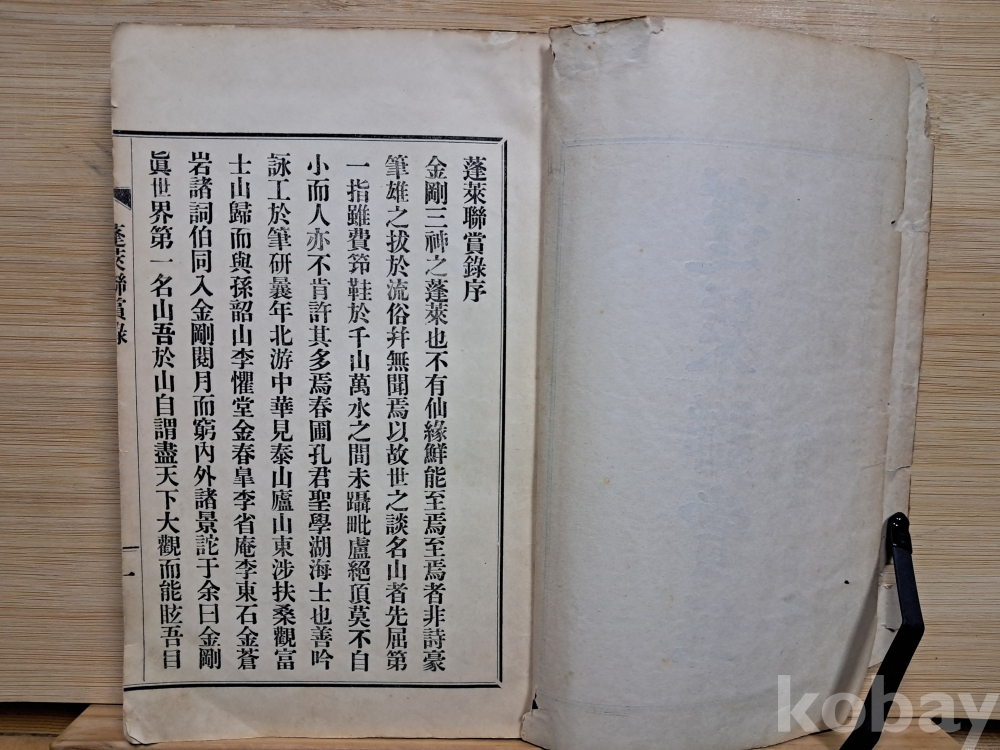 蓬萊聯賞錄序
金剛三神之蓬萊也不有仙緣鮮能至焉至焉者非詩豪
筆雄之拔於流俗幷無聞焉以故世之談名山者先屈第
一指雖費筇鞋於千山萬水之間未躡毗盧絕頂莫不自
小而人亦不肯許其多焉春圃孔君聖學湖海士也善吟
詠工於筆硏曩年北游中華見泰山廬山東涉扶桑觀富
士山歸而與孫韶山李懼堂金春皐李省庵李東石金蒼
岩諸詞伯同入金剛閱月而窮內外諸景詑于余曰金剛
眞世界第一名山吾於山自謂盡天下大觀而能眩吾目
蓬萊聯賞錄
一
kobay